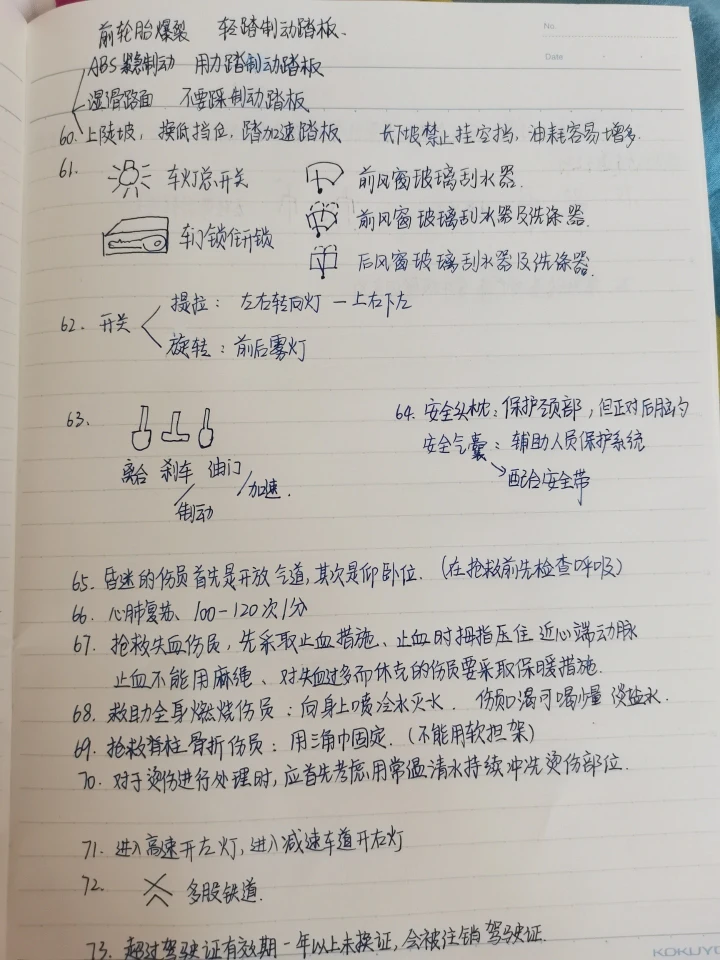 No.
Date
前轮胎爆裂 轻踏制动踏板.
ABS紧急制动 用力踏制动踏板
湿滑路面 不要踩制动踏板
60. 上陡坡, 换低挡位, 踏加速踏板 长下坡禁止挂空挡, 油耗容易增多.
61. 车灯总开关 前风窗玻璃刮水器.
车门锁住开锁 前风窗玻璃刮水器及洗涤器.
后风窗玻璃刮水器及洗涤器.
62. 开关 提拉: 左右转向灯 — 上右下左
旋转: 前后雾灯
63. 64. 安全头枕: 保护颈部, 但正对后脑勺
安全气囊: 辅助人员保护系统
离合 刹车 油门 配合安全带
制动 加速.
65. 昏迷的伤员首先是开放气道, 其次是仰卧位. (在抢救前先检查呼吸)
66. 心肺复苏、100-120次/分
67. 抢救失血伤员, 先采取止血措施、止血时拇指压住近心端动脉
止血不能用麻绳、对失血过多而休克的伤员要采取保暖措施.
68. 救助全身燃烧伤员: 向身上喷冷水灭火. 伤员口渴可喝少量淡盐水.
69. 抢救脊柱骨折伤员: 用三角巾固定. (不能用软担架)
70. 对于烫伤进行处理时, 应首先考虑用常温清水持续冲洗烫伤部位.
71. 进入高速开左灯, 进入减速车道开右灯
72. 多股铁道.
73. 超过驾驶证有效期一年以上未换证, 会被注销驾驶证.
KOKUYO